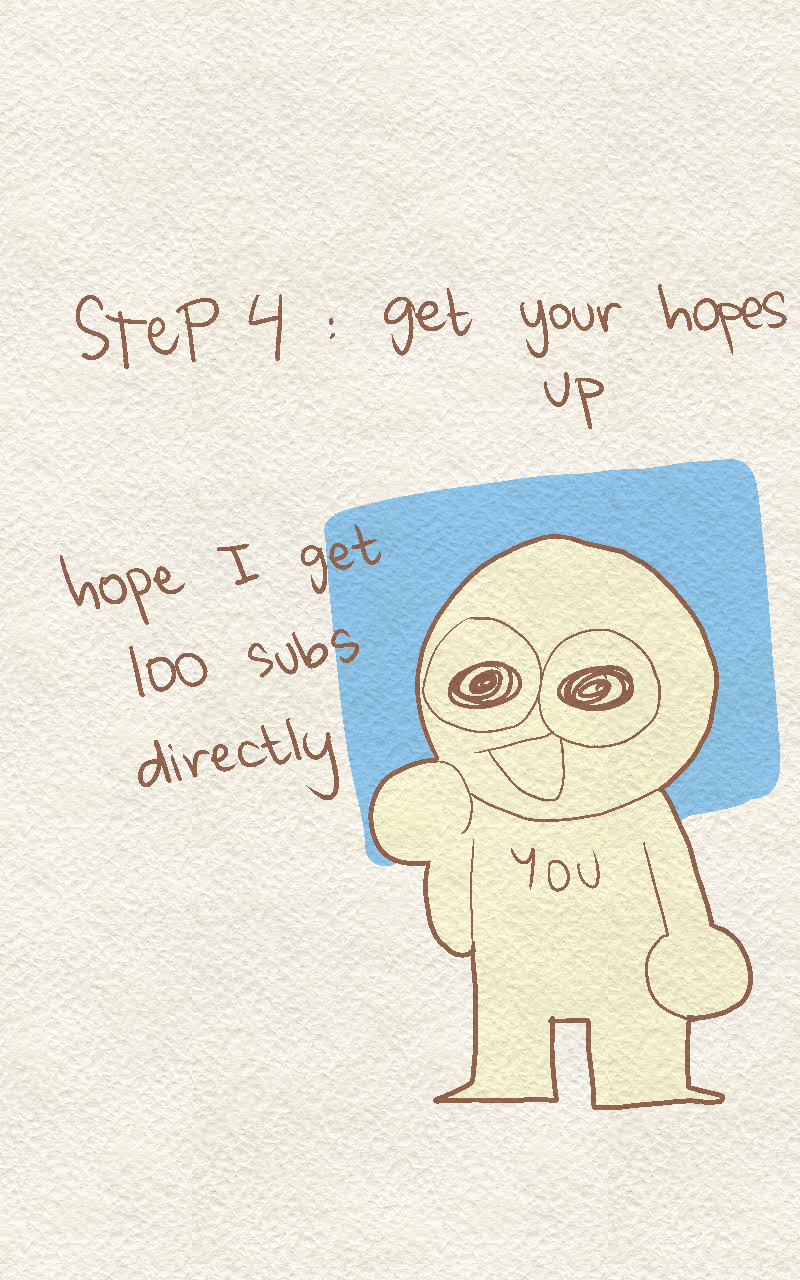 SteP 4 : get your hopes
up
hope I get
100 subs
directly
YOU